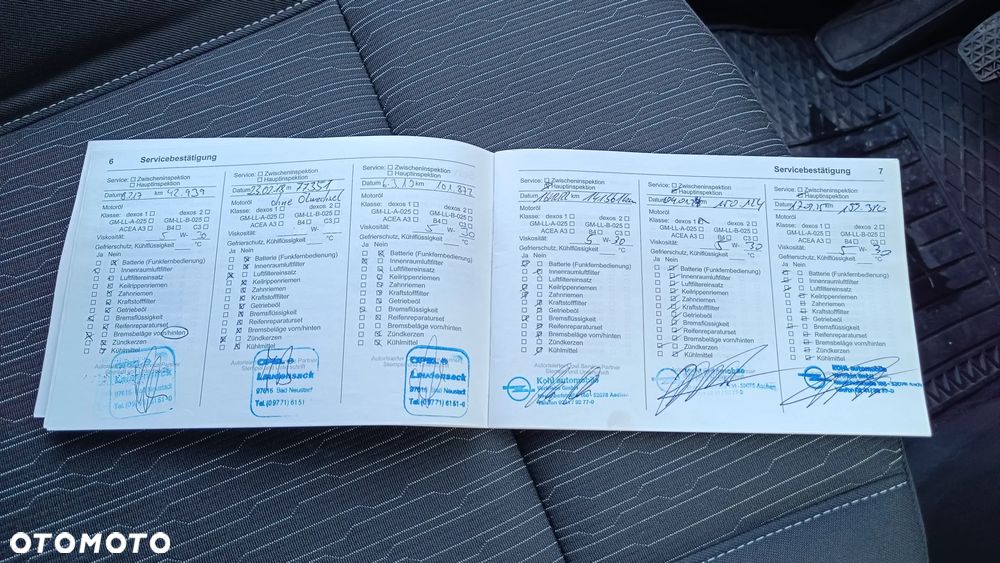 6 Servicebestätigung
Service: Zwischeninspektion
Hauptinspektion
Datum km 42.939
Motoröl
Klasse: dexos 1 dexos 2
GM-LL-A-025 GM-LL-B-025
ACEA A3 B4 C3
Viskosität: 5 W- 30
Gefrierschutz, Kühlflüssigkeit °C
Ja Nein
Batterie (Funkfernbedienung)
Innenraumluftfilter
Luftfiltereinsatz
Keilrippenriemen
Zahnriemen
Kraftstofffilter
Getriebeöl
Bremsflüssigkeit
Reifenreparaturset
Bremsbeläge vorn/hinten
Zündkerzen
Kühlmittel
Service: Zwischeninspektion
Hauptinspektion
Datum 23.02.18 km 77351
Motoröl Ohne Ölwechsel
Klasse: dexos 1 dexos 2
GM-LL-A-025 GM-LL-B-025
ACEA A3 B4 C3
Viskosität: W-
Gefrierschutz, Kühlflüssigkeit °C
Ja Nein
Batterie (Funkfernbedienung)
Innenraumluftfilter
Luftfiltereinsatz
Keilrippenriemen
Zahnriemen
Kraftstofffilter
Getriebeöl
Bremsflüssigkeit
Reifenreparaturset
Bremsbeläge vorn/hinten
Zündkerzen
Kühlmittel
OPEL
Laudensack
97616 Bad Neustadt
Tel. (09771) 6151
Service: Zwischeninspektion
Hauptinspektion
Datum 6.3.19 km 101.832
Motoröl
Klasse: dexos 1 dexos 2
GM-LL-A-025 GM-LL-B-025
ACEA A3 B4 C3
Viskosität: 5 W- 30
Gefrierschutz, Kühlflüssigkeit °C
Ja Nein
Batterie (Funkfernbedienung)
Innenraumluftfilter
Luftfiltereinsatz
Keilrippenriemen
Zahnriemen
Kraftstofffilter
Getriebeöl
Bremsflüssigkeit
Reifenreparaturset
Bremsbeläge vorn/hinten
Zündkerzen
Kühlmittel
OPEL
Laudensack
97616 Bad Neustadt
Tel. (09771) 6151-0
Servicebestätigung 7
Service: Zwischeninspektion
Hauptinspektion
Datum km
Motoröl
Klasse: dexos 1 dexos 2
GM-LL-A-025 GM-LL-B-025
ACEA A3 B4 C3
Viskosität: 5 W- 30
Gefrierschutz, Kühlflüssigkeit °C
Ja Nein
Batterie (Funkfernbedienung)
Innenraumluftfilter
Luftfiltereinsatz
Keilrippenriemen
Zahnriemen
Kraftstofffilter
Getriebeöl
Bremsflüssigkeit
Reifenreparaturset
Bremsbeläge vorn/hinten
Zündkerzen
Kühlmittel
Kohl automobile
Service: Zwischeninspektion
Hauptinspektion
Datum km 150.124
Motoröl
Klasse: dexos 1 dexos 2
GM-LL-A-025 GM-LL-B-025
ACEA A3 B4 C3
Viskosität: 5 W- 30
Gefrierschutz, Kühlflüssigkeit °C
Ja Nein
Batterie (Funkfernbedienung)
Innenraumluftfilter
Luftfiltereinsatz
Keilrippenriemen
Zahnriemen
Kraftstofffilter
Getriebeöl
Bremsflüssigkeit
Reifenreparaturset
Bremsbeläge vorn/hinten
Zündkerzen
Kühlmittel
Service: Zwischeninspektion
Hauptinspektion
Datum km
Motoröl
Klasse: dexos 1 dexos 2
GM-LL-A-025 GM-LL-B-025
ACEA A3 B4 C3
Viskosität: 5 W- 30
Gefrierschutz, Kühlflüssigkeit °C
Ja Nein
Batterie (Funkfernbedienung)
Innenraumluftfilter
Luftfiltereinsatz
Keilrippenriemen
Zahnriemen
Kraftstofffilter
Getriebeöl
Bremsflüssigkeit
Reifenreparaturset
Bremsbeläge vorn/hinten
Zündkerzen
Kühlmittel
Kohl automobile
OTOMOTO